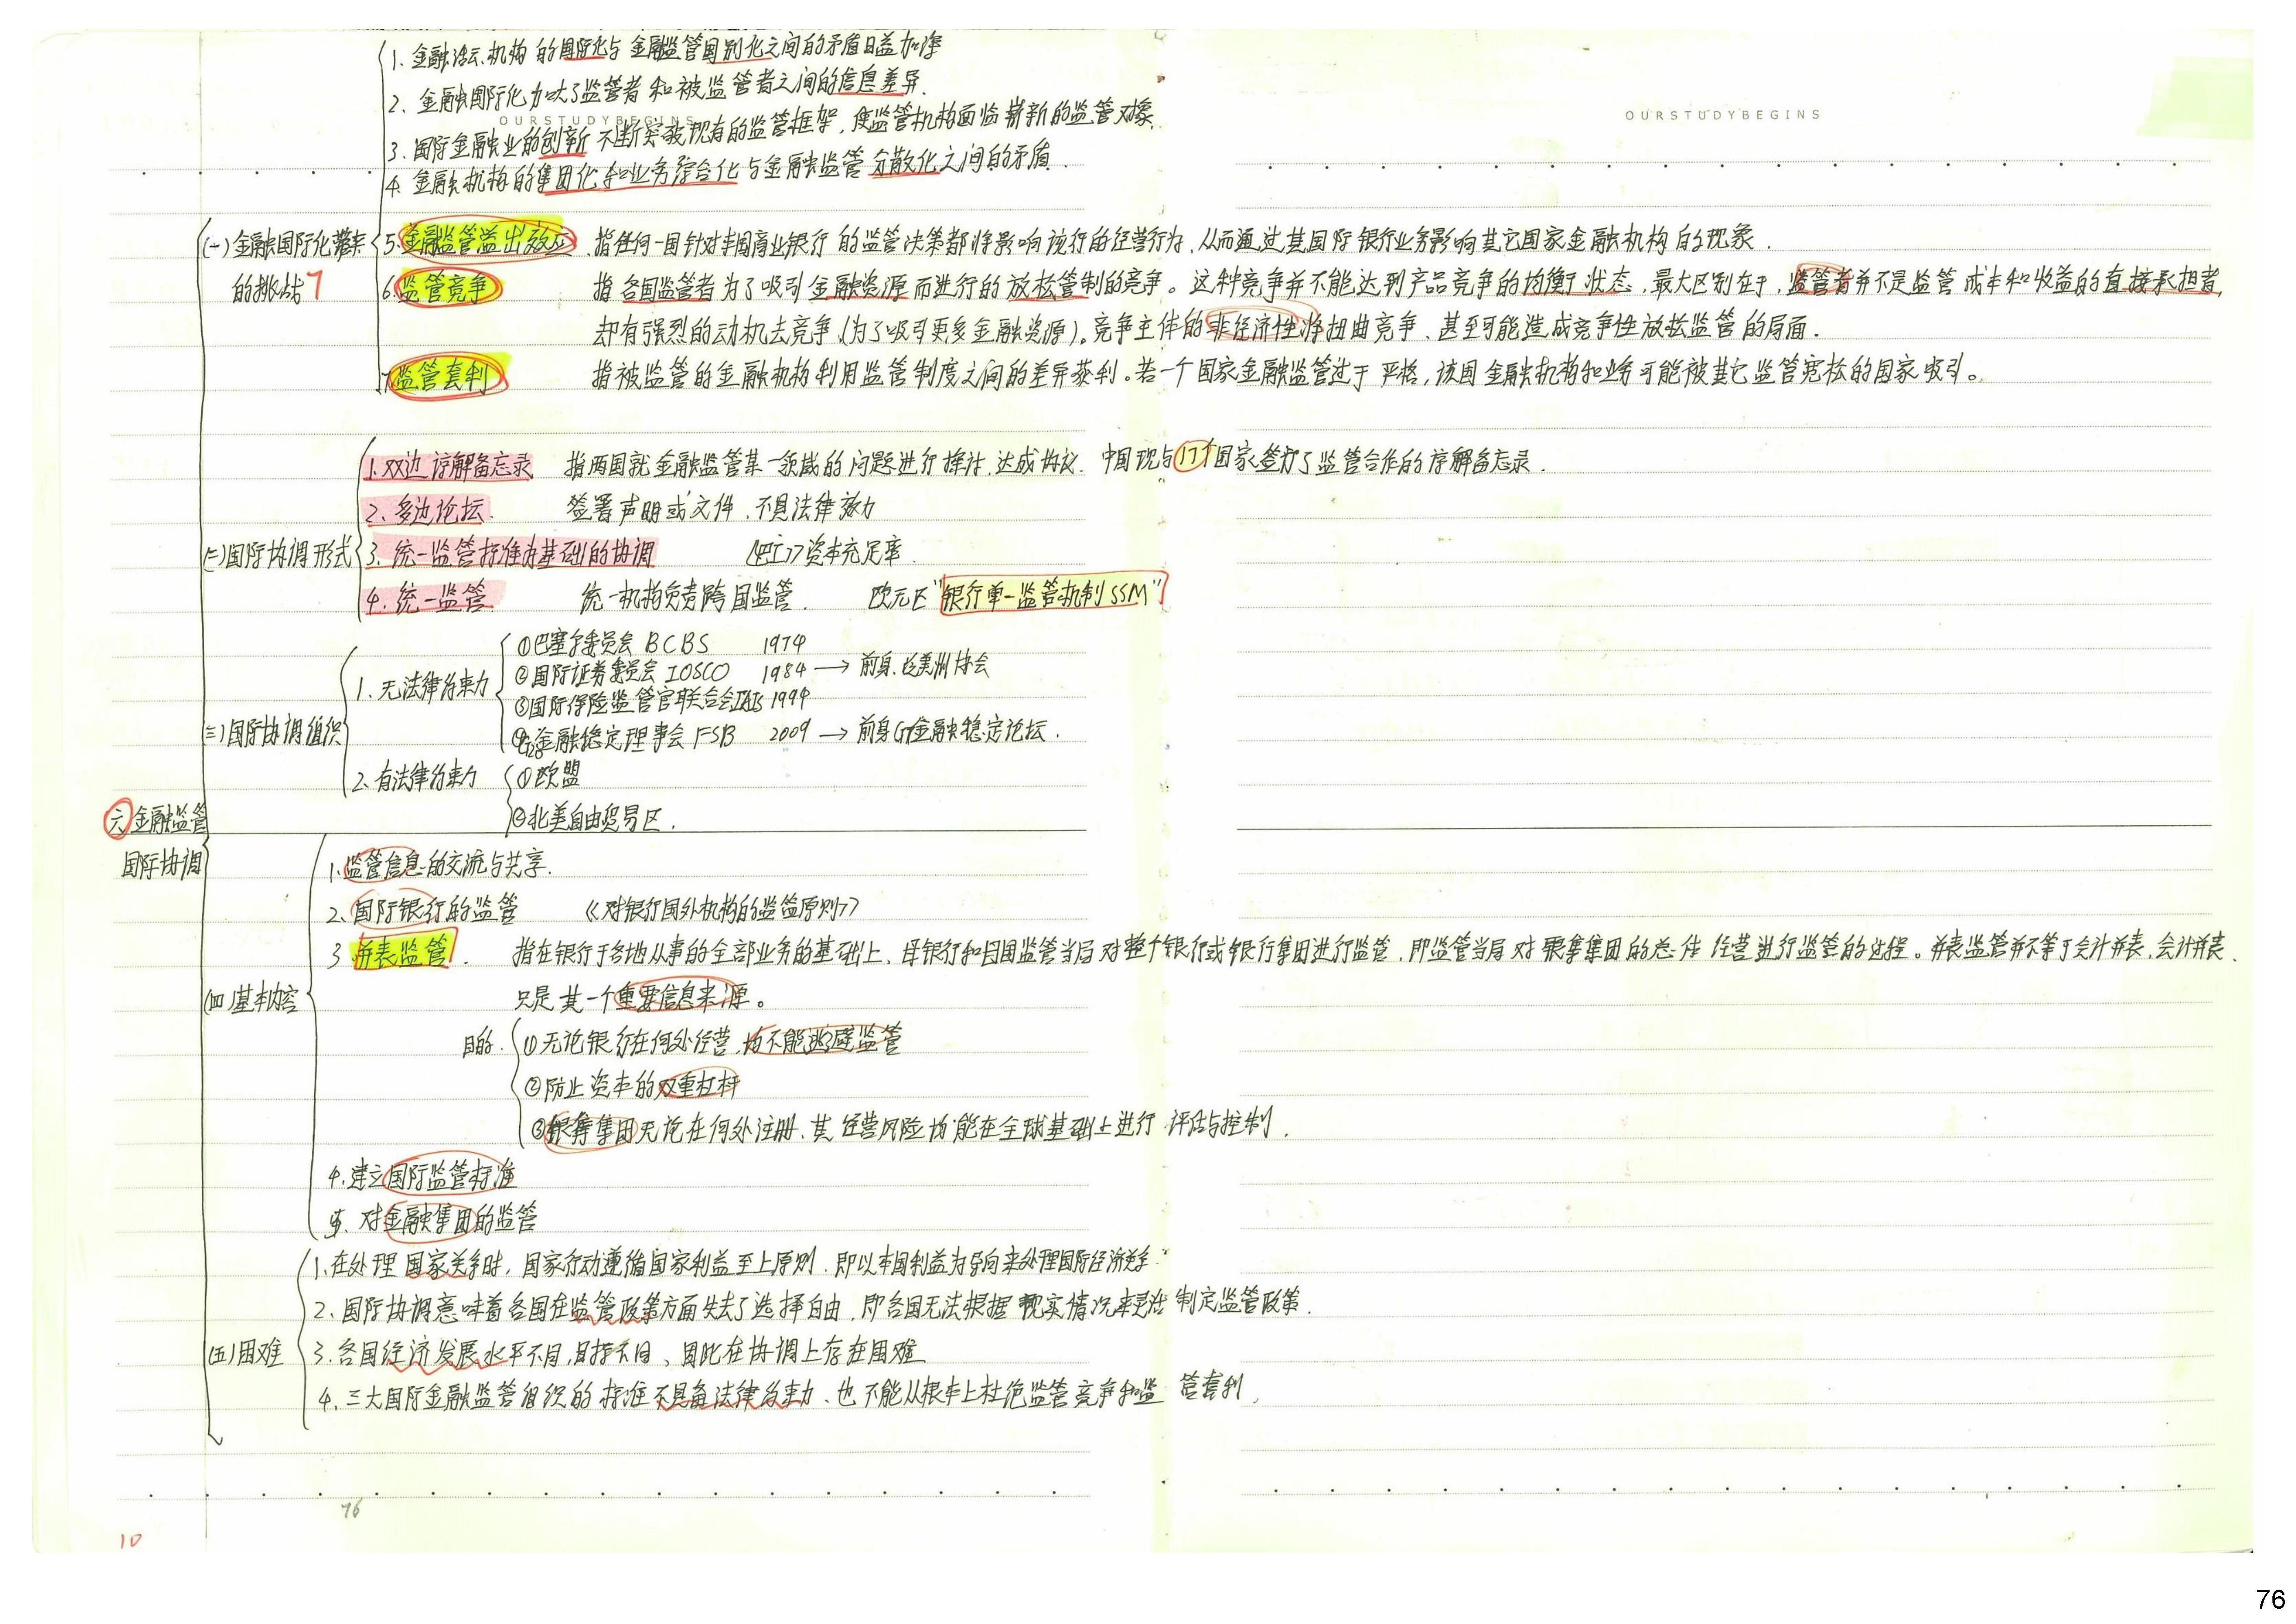 1. 金融活动、机构的国际化与金融监管国别化之间的矛盾日益加深
2. 金融国际化加大了监管者和被监管者之间的信息差异.
OURSTUDYBEGINS
OURSTUDYBEGINS
3. 国际金融业的创新不断突破现有的监管框架,使监管机构面临崭新的监管对象.
4. 金融机构的集团化和业务综合化与金融监管分散化之间的矛盾.
(一)金融国际化带来的挑战 7
5.金融监管溢出效应. 指任何一国针对本国商业银行的监管决策都将影响该行的经营行为,从而通过其国际银行业务影响其它国家金融机构的现象.
6.监管竞争 指各国监管者为了吸引金融资源而进行的放松管制的竞争。这种竞争并不能达到产品竞争的均衡状态,最大区别在于,监管者并不是监管成本和收益的直接承担者,
却有强烈的动机去竞争(为了吸引更多金融资源)。竞争主体的非经济性将扭曲竞争、甚至可能造成竞争性放松监管的局面.
7.监管套利 指被监管的金融机构利用监管制度之间的差异获利。若一个国家金融监管过于严格,该国金融机构和业务可能被其它监管宽松的国家吸引。
1.双边谅解备忘录 指两国就金融监管某一领域的问题进行探讨,达成协议. 中国现与17个国家签订了监管合作的谅解备忘录.
2、多边论坛. 签署声明或文件、不具法律效力
(二)国际协调形式
3. 统一监管标准为基础的协调 《巴I》资本充足率.
4. 统一监管 统一机构负责跨国监管. 欧元区"银行单一监管机制SSM"
①巴塞尔委员会 BCBS 1974
1. 无法律约束力
②国际证券委员会 IOSCO 1984 → 前身.泛美洲协会
③国际保险监管官联合会IAIS 1994
(三)国际协调组织
④G20金融稳定理事会 FSB 2009 → 前身G7金融稳定论坛.
2、有法律约束力
①欧盟
②北美自由贸易区.
六 金融监管国际协调
1.监管信息的交流与共享.
2、国际银行的监管 《对银行国外机构的监管原则》
3 并表监管. 指在银行于各地从事的全部业务的基础上,母银行和母国监管当局对整个银行或银行集团进行监管.即监管当局对银行集团的总体经营进行监管的过程。并表监管并不等于会计并表,会计并表
(四)基本内容
只是其一个重要信息来源。
目的.
①无论银行在何处经营,均不能逃避监管
②防止资本的双重杠杆
③银行集团无论在何处注册、其经营风险均能在全球基础上进行评估与控制.
4.建立国际监管标准
5. 对金融集团的监管
1.在处理国家关系时,国家行动遵循国家利益至上原则.即以本国利益为导向来处理国际经济关系.
2. 国际协调意味着各国在监管政策方面失去了选择自由.即各国无法根据现实情况灵活制定监管政策.
(五)困难
3.各国经济发展水平不同,目标不同、因此在协调上存在困难
4. 三大国际金融监管组织的标准不具备法律约束力、也不能从根本上杜绝监管竞争和监管套利.
76
10
76